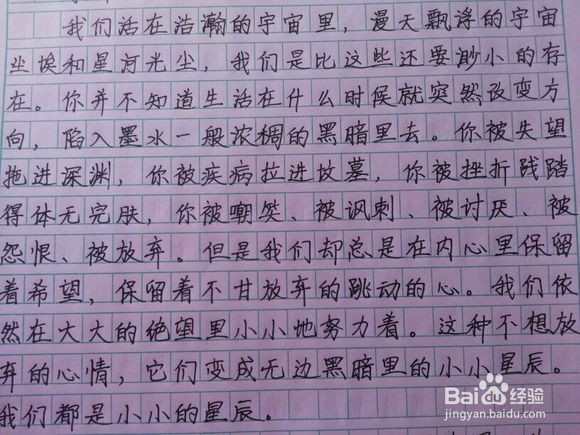 我们活在浩瀚的宇宙里，漫天飘浮的宇宙
尘埃和星河光尘，我们是比这些还要渺小的存
在。你并不知道生活在什么时候就突然改变方
向，陷入墨水一般浓稠的黑暗里去。你被失望
拖进深渊，你被疾病拉进坟墓，你被挫折践踏
得体无完肤，你被嘲笑、被讽刺、被讨厌、被
怨恨、被放弃。但是我们却总是在内心里保留
着希望，保留着不甘放弃的跳动的心。我们依
然在大大的绝望里小小地努力着。这种不想放
弃的心情，它们变成无边黑暗里的小小星辰。
我们都是小小的星辰。
Baidu经验
jingyan.baidu.com